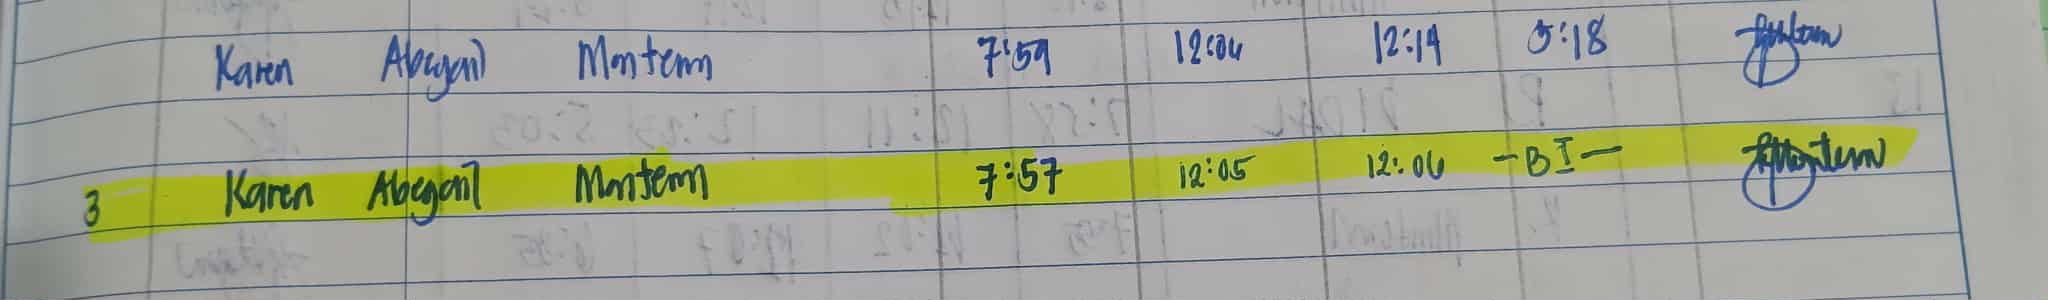 Karen Abegail Monteron 7:59 12:04 12:19 5:18
3 Karen Abegail Monteron 7:57 12:05 12:06 -BI-